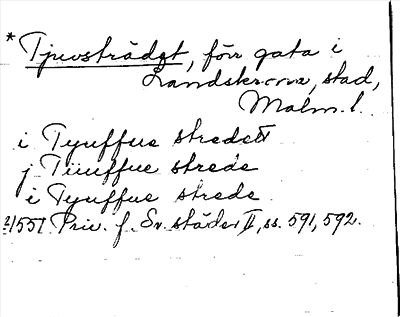 * Tjuvsträdgt, förr gata i
Landskrona, stad,
Malm. l.
i Tyuffue stredett
j Tiuuffue strede
i Tyuffue strede
21557 Priv. f. Sv. städer II, ss. 591, 592.